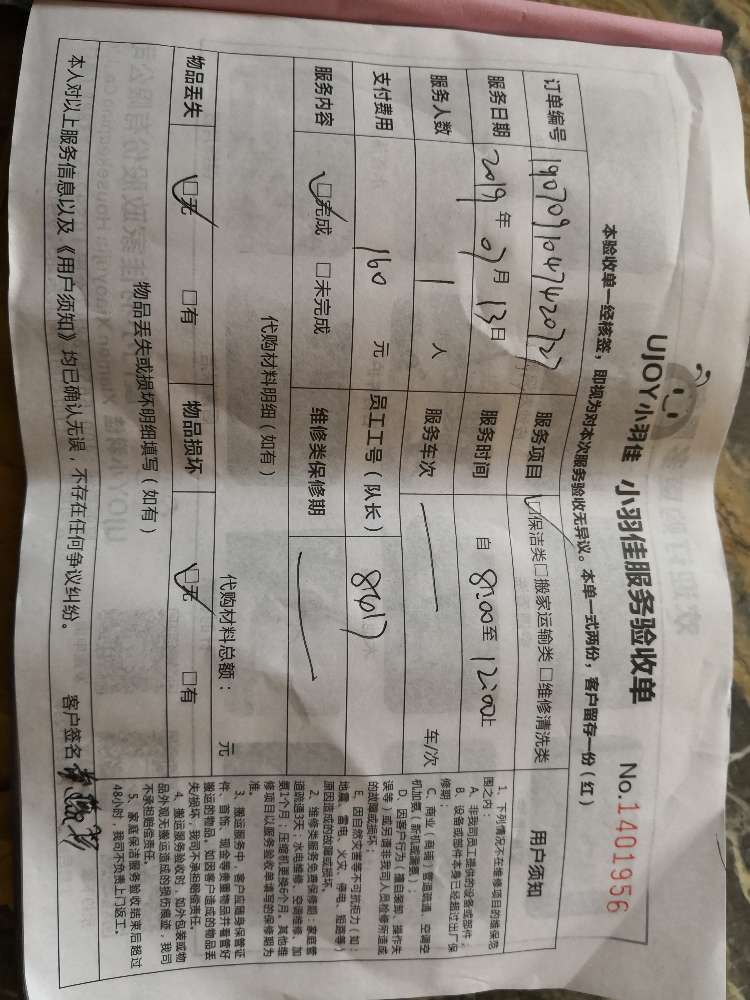 UJOY小羽佳 小羽佳服务验收单 No.1401956
本验收单一经核签，即视为对本次服务验收无异议。本单一式两份，客户留存一份(红)
订单编号 190709104742072 服务项目 ☑保洁类□搬家运输类 □维修清洗类
服务日期 2019年07月13日 服务时间 自 8:00至 12:00止
服务人数 1 人 服务车次 车/次
支付费用 160 元 员工工号（队长） 8617
服务内容 ☑完成 □未完成 维修类保修期
代购材料明细（如有） 代购材料总额： 元
物品丢失 ☑无 □有 物品损坏 ☑无 □有
物品丢失或损坏明细填写（如有）
本人对以上服务信息以及《用户须知》均已确认无误，不存在任何争议纠纷。 客户签名：
用户须知
1、下列情况不在维修项目的维保范
围之内：
A、非我司员工提供的设备或部件；
B、设备或部件本身已经超过出厂保
修期；
C、商业（商铺）管道疏通、空调空
D、因客户行为（擅自装卸、操作失
误等）或另请非我司人员检修所造成
的故障或损坏；
E、因自然灾害等不可抗拒力（如：
地震、雷电、火灾、停电、短路等）
原因造成的故障或损坏。
2、维修类服务免费保修期：家庭管
道疏通3天；水电维修、空调维修、加
氨1个月，压缩机更换6个月，其他维
修项目以服务验收单填写的保修期为
准。
3、搬运服务中，客户应随身保管证
件、首饰、现金等贵重物品并看管好
搬运的物品。如因客户造成的物品丢
失/损坏，我司不承担赔偿责任。
4、搬运服务验收时，如外包装或物
品外观无搬运造成的损伤痕迹，我司
不承担赔偿责任。
5、家庭保洁服务验收结束后超过
48小时，我司不负责上门返工。